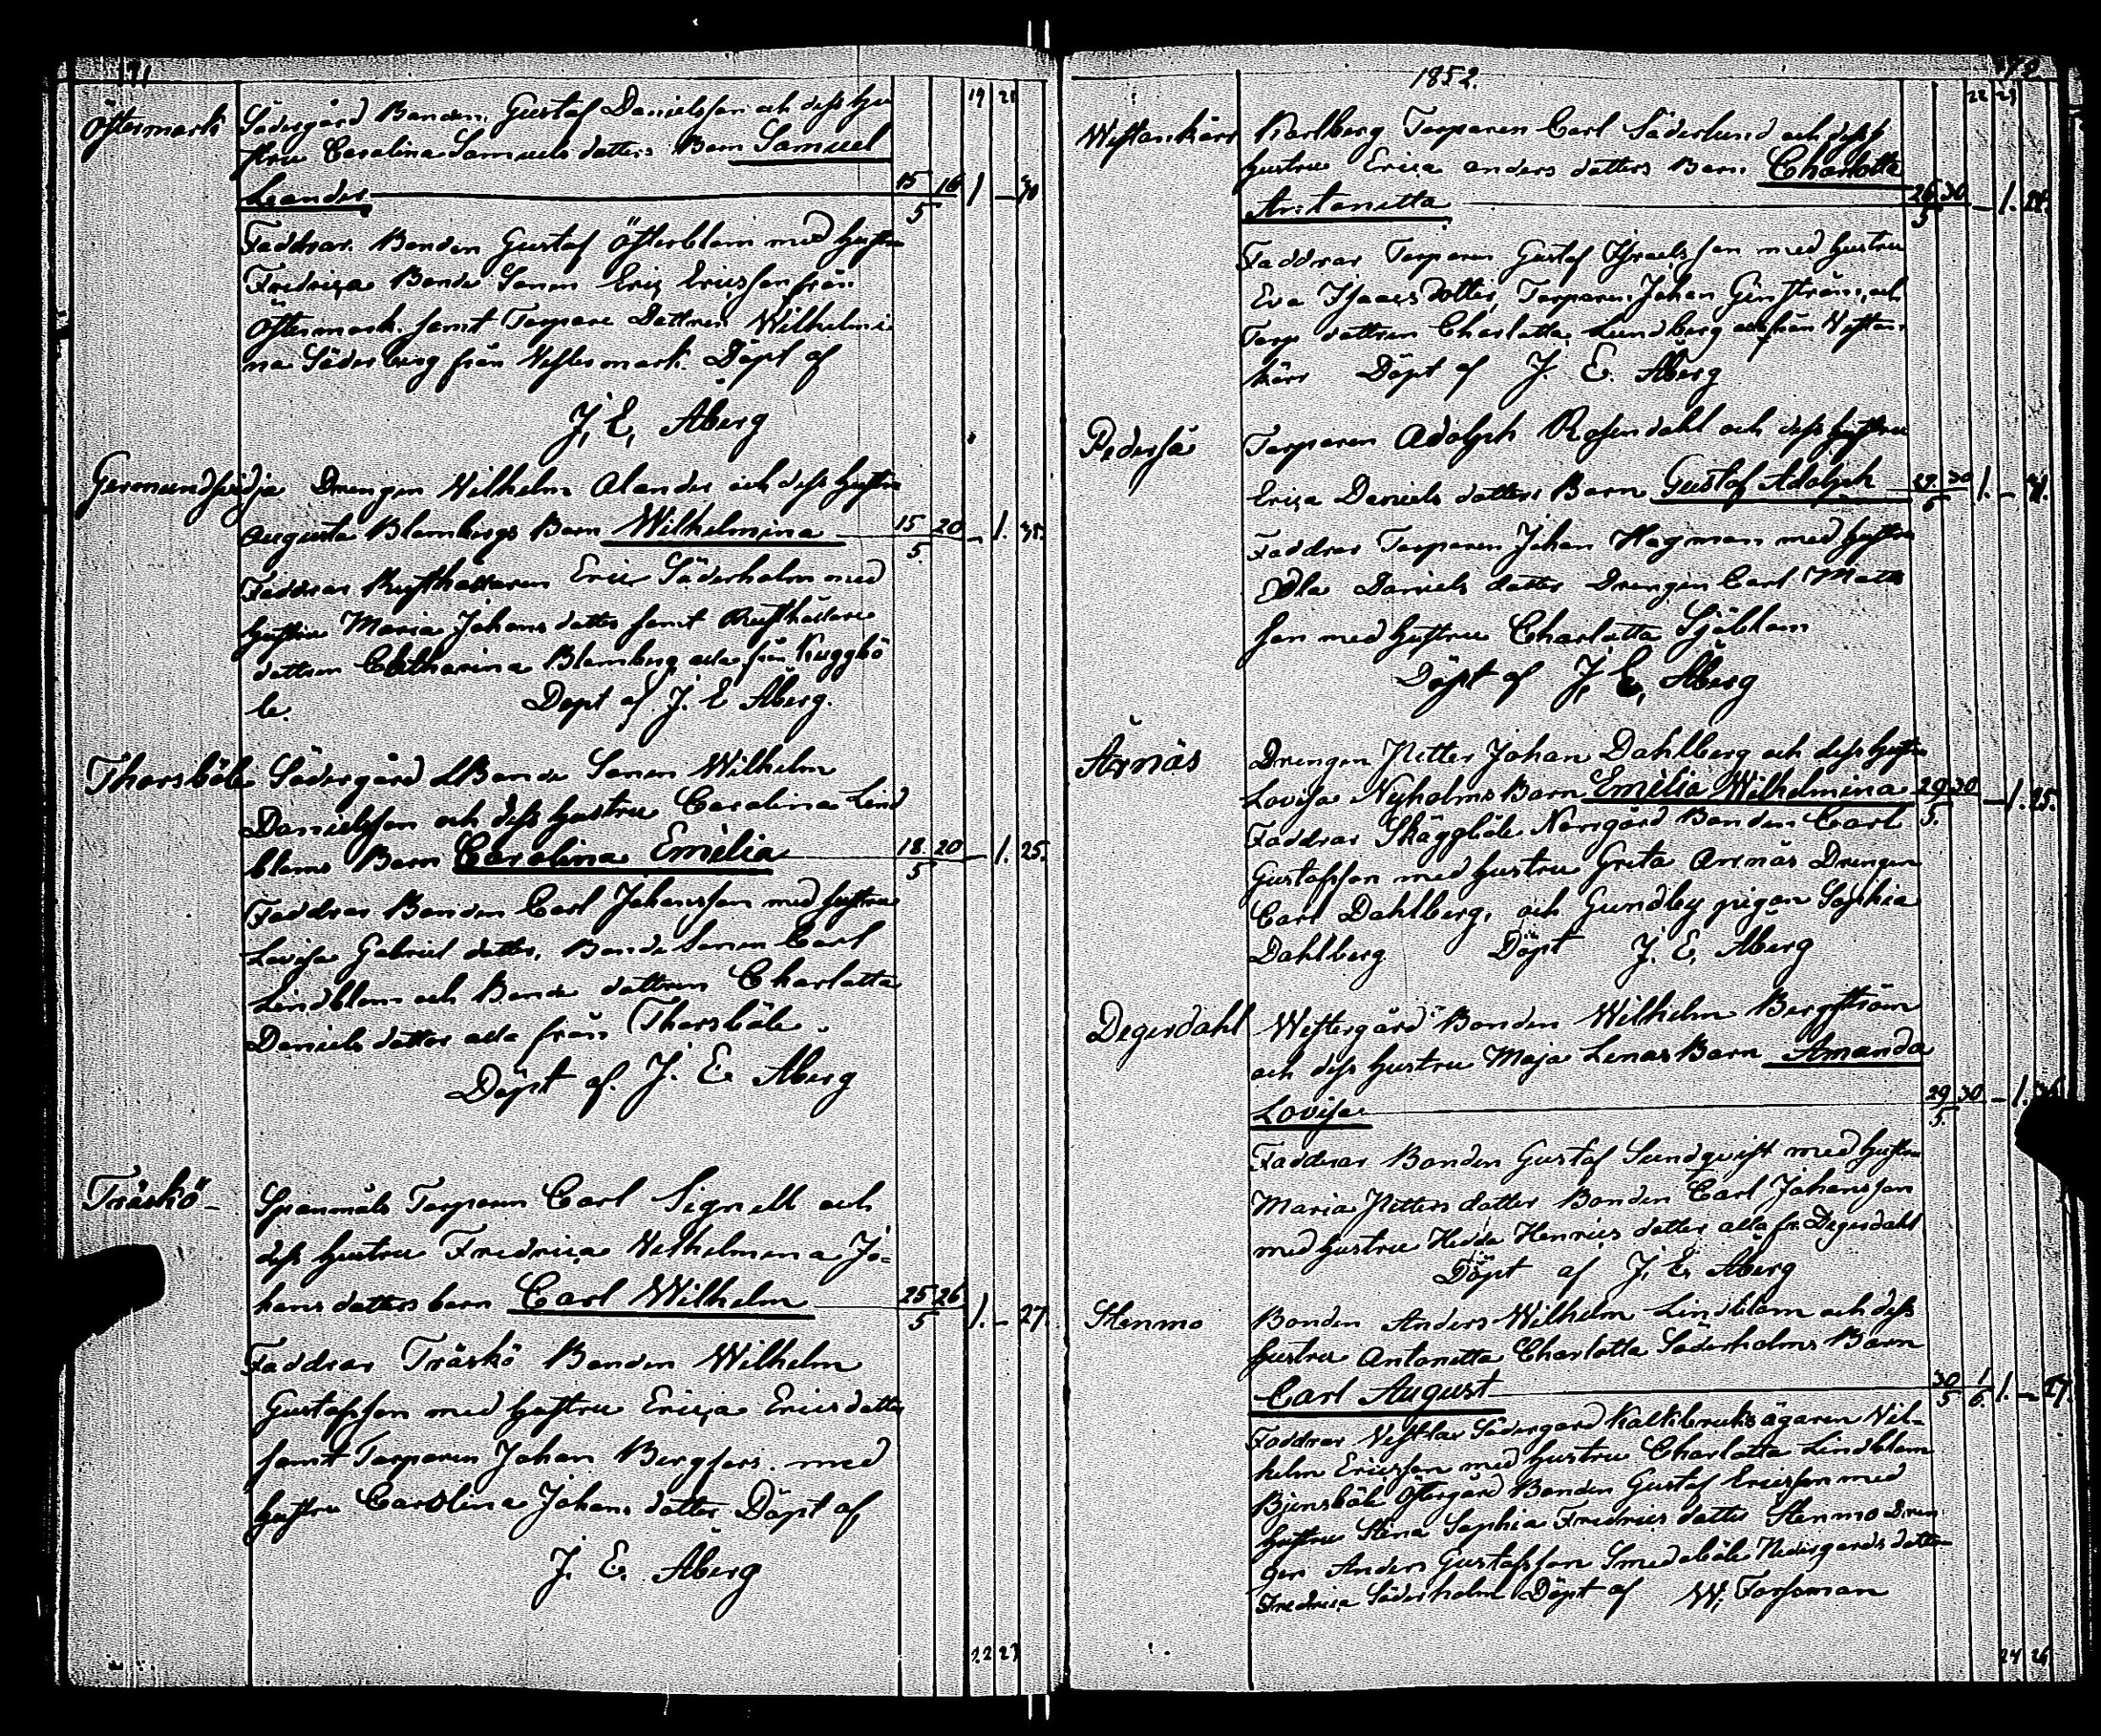 71
19 21
Östermark Södergård Bonden Gustaf Danielsson och dess hu
stru Carolina Samuels dotters Barn Samuel
Leander 15/5 16 1 - 30
Faddrar Bonden Gustaf Österblom med hustru
Fredrica Bonde Sonen Eric Ericsson från
Östermark samt Torpare Dottren Wilhelmi
na Söderberg från Westermark. Döpt af
J. E. Åberg
Germundsvedja Drengen Wilhelm Alander och dess hustru
Augusta Blombergs Barn Wilhelmina 15/5 20 - 1. 35.
Faddrar Rusthållaren Eric Söderholm med
hustru Maria Johans dotter samt Rusthållare
dottren Catharina Blomberg alla från Knuggbö
le. Döpt af J. E Åberg.
Thorsböle Södergård Bonde Sonen Wilhelm
Danielsson och dess hustru Carolina Lind
bloms Barn Carolina Emelia 18/5 20 - 1. 25.
Faddrar Bonden Carl Johansson med hustru
Lovisa Gabriels dotter, Bonde Sonen Carl
Lindblom och Bonde dottren Charlotta
Daniels dotter alla från Thorsböle.
Döpt af. J. E Åberg
Träskö - Spanmåls Torparen Carl Signell och
dess hustru Fredrica Wilhelmina Jo=
hans dotters barn Carl Wilhelm 25/5 26 1. - 27.
Faddrar Träskö Bonden Wilhelm
Gustafsson med hustru Erica Ericsdotter
samt Torparen Johan Bergfors med
hustru Carolina Johans dotter Döpt af
J. E. Åberg
22 23
1852. 72
22 23
Westankärr Karlberg Torparen Carl Söderlund och dess
hustru Erica anders dotters Barn Charlotta
Antonetta 26/5 30 - 1. 22.
Faddrar Torparen Gustaf Israelsson med hustru
Eva Isaacs Dotter, Torparen Johan Ginström, och
Torp dottren Charlotta Lundberg alla från Westan
kärr Döpt af J. E. Åberg
Pederså Torparen Adolph Rosendahl och dess hustru
Erica Daniels dotters Barn Gustaf Adolph 29/5 30 1. -
Faddrar Torparen Johan Hagman med hustru
Edla Daniels dotter Drengen Carl Mats
son med hustru Charlotta Sjöblom
Döpt af J. E, Åberg
Årnäs Drengen Petter Johan Dahlberg och dess hustru
Lovisa Nyholms Barn Emelia Wilhelmina 29/5. 30 - 1. 25.
Faddrar Skäggböle Norrgård Bonden Carl
Gustafsson med hustru Greta Årnäs Drengen
Carl Dahlberg, och Gundby pigan Sophia
Dahlberg Döpt J. E, Åberg
Degerdahl Westergård Bonden Wilhelm Bergström
och dess hustru Maja Lenas Barn Amanda
Lovisa 29/5. 30 - 1.
Faddrar Bonden Gustaf Sundqvist med hustru
Maria Petters dotter Bonden Carl Johansson
med hustru Hedda Henrics dotter alla fr. Degerdahl
Döpt af J. E, Åberg
Stenmo Bonden Anders Wilhelm Lindblom och dess
hustru Antonetta Charlotta Söderholms Barn
Carl August 30/5 1/6. 1. - 27.
Faddrar Södergård Kalkbruksägaren Wil-
helm Ericsson med hustru Charlotta Lindblom
Bjensböle Östergård Bonden Gustaf Ericsson med
hustru Stina Sophia Fredrics dotter Stenmo Dren
gen Anders Gustafsson Smedsböle Nedergårds dotter
Fredrica Söderholm Döpt af W. Forssman
24 26